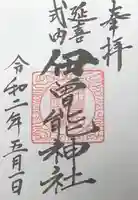 奉拝
延喜
式内
伊曽能神社
令和二年五月一日